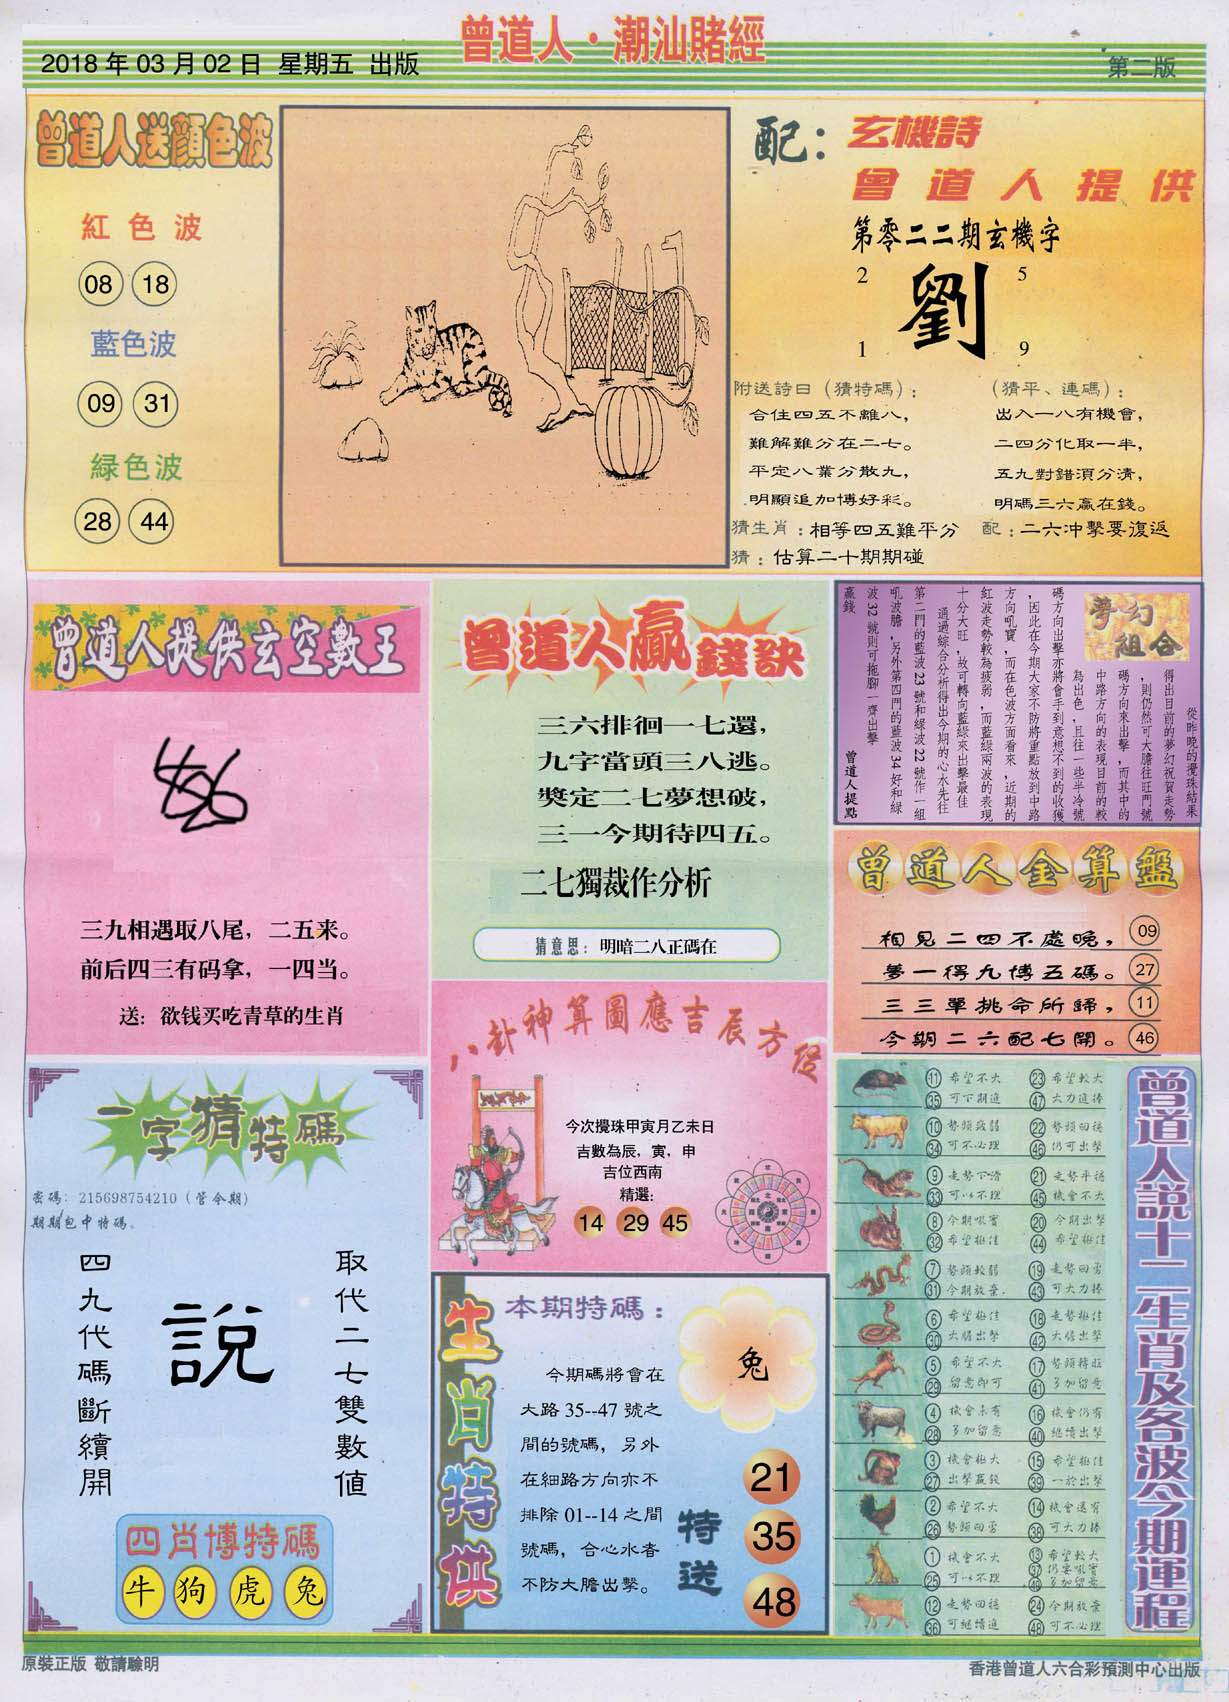 曾道人·潮汕賭經
2018 年 03 月 02 日 星期五 出版
第二版
曾道人送顏色波
紅色波
08 18
藍色波
09 31
緑色波
28 44
配：
玄機詩
曾道人提供
第零二二期玄機字
2 5
劉
1 9
附送詩曰（猜特碼）：
合住四五不離八，
難解難分在二七。
平定八業分散九，
明顯追加博好彩。
（猜平、連碼）：
出入一八有機會，
二四分化取一半，
五九對錯須分清，
明碼三六贏在錢。
猜生肖：相等四五難平分
配：二六冲擊要復返
猜：估算二十期期碰
曾道人提供玄空數王
三九相遇取八尾，二五来。
前后四三有码拿，一四当。
送：欲钱买吃青草的生肖
曾道人贏錢訣
三六排徊一七還，
九字當頭三八逃。
獎定二七夢想破，
三一今期待四五。
二七獨裁作分析
猜意思：明暗二八正碼在
夢幻
組合
從昨晚的攪珠結果
得出目前的夢幻祝賀走勢
，則仍然可大膽往旺門號
碼方向來出擊，而其中的
中路方向的表現目前的較
為出色，且往一些半冷號
碼方向出擊亦將會手到意想不到的收獲
，因此在今期大家不防將重點放到中路
方向吼寶，而在色波方面看來，近期的
紅波走勢較為疲弱，而藍綠兩波的表現
十分大旺，故可轉向藍綠來出擊最佳
通過綜合分析得出今期的心水先往
第二門的藍波23號和緑波22號作一組
吼波膽，另外第四門的藍波34好和緑
波32號則可拖腳一齊出擊
贏錢
曾道人提點
曾道人金算盤
相見二四不處晚， 09
夢一得九博五碼。 27
三三單挑命所歸， 11
今期二六配七開。 46
八卦神算圖應吉辰方位
今次攪珠甲寅月乙未日
吉數為辰，寅，申
吉位西南
精選：
14 29 45
一字猜特碼
密碼：215698754210（管今期）
期期包中特碼。
取代二七雙數值
說
四九代碼斷續開
四肖博特碼
牛 狗 虎 兔
生肖特供
本期特碼：
兔
今期碼將會在
大路 35--47 號之
間的號碼，另外
在細路方向亦不
排除 01--14 之間
號碼，合心水者
不防大膽出擊。
特送
21
35
48
曾道人説十二生肖及各波今期運程
11 希望不大 23 希望較大
35 可下期進 47 大力追捧
10 勢頭疲弱 22 勢頭回穩
34 可不必理 46 仍可出擊
9 走勢下滑 21 走勢平穩
33 可以不理 45 機會不大
8 今期吼寶 20 今期出擊
32 希望極佳 44 希望極佳
7 勢頭較弱 19 走勢回勇
31 今期放棄. 43 可大力捧
6 希望極佳 18 走勢極佳
30 大膽出擊 42 大膽出擊
5 希望不大 17 勢頭轉旺
29 留意即可 41 多加留意
4 機會未有 16 機會仍有
28 多加留意 40 繼續出擊
3 機會極大 15 希望極佳
27 出擊贏錢 39 一於出擊
2 希望不大 14 機會還有
26 勢頭回勇 38 可大力捧
1 機會不大 13 希望較大
25 可以不理 37 仍需吼寶
49 多加留意
12 走勢回穩 24 今期放棄
36 可繼續追 48 可不必理
原裝正版 敬請驗明
香港曾道人六合彩預測中心出版